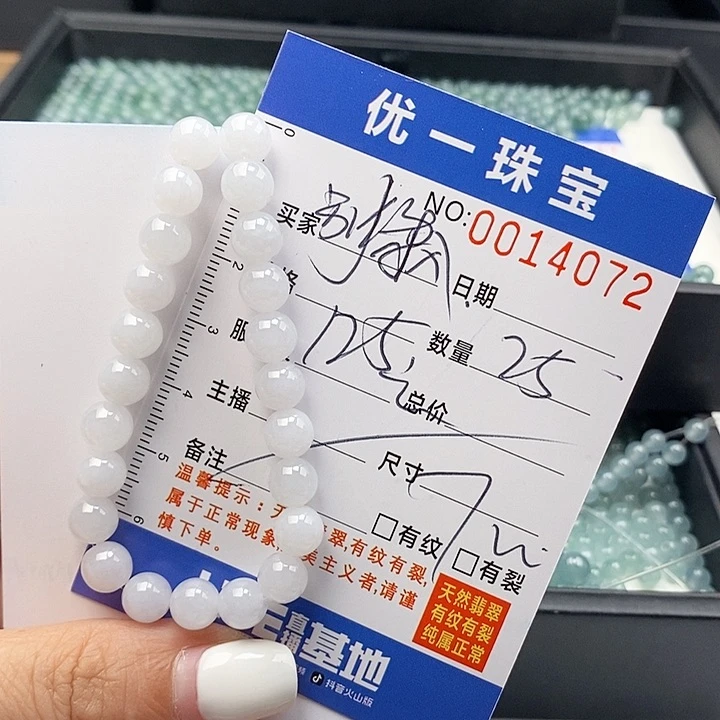 优一珠宝
NO:0014072
买家 日期
格
服 125 数量 25
主播 总价
备注 尺寸 7
□有纹 □有裂
温馨提示：天 翠,有纹有裂,
属于正常现象, 美主义者,请谨
慎下单。
天然翡翠
有纹有裂
纯属正常
直播
基地
抖音火山版
0
1
2
3
4
5
6